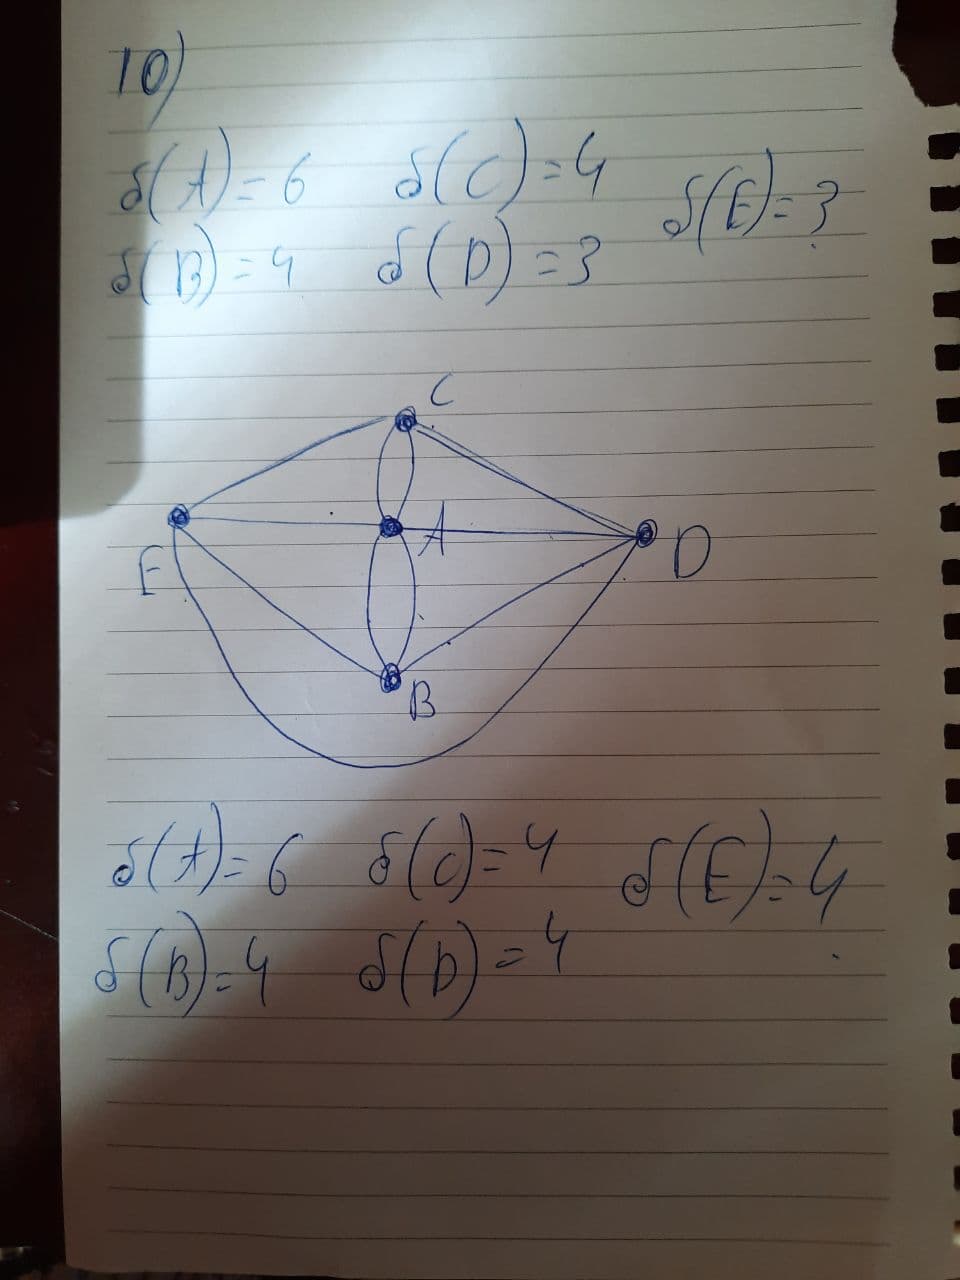 10)
δ(A)=6 δ(C)=4 δ(E)=?
δ(B)=4 δ(D)=3
C
E
A
D
B
δ(A)=6 δ(C)=4 δ(E)=4
δ(B)=4 δ(D)=4